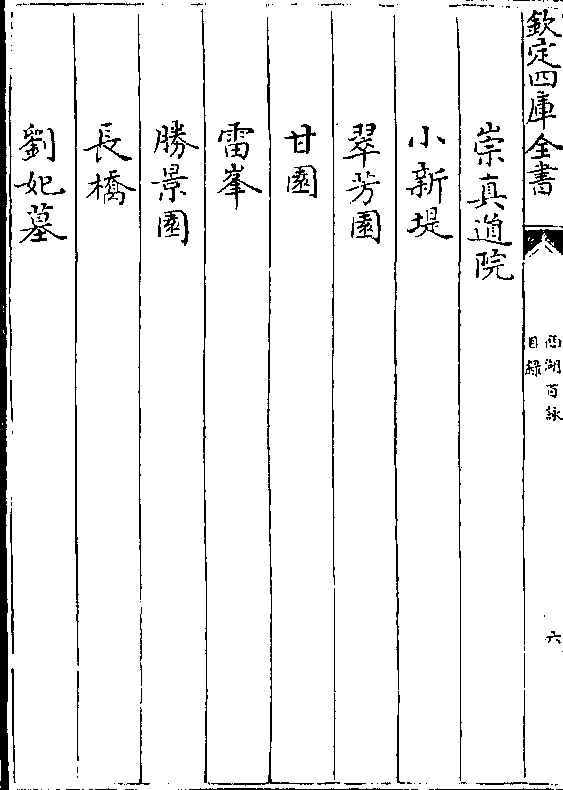 欽定四庫全書
西湖百詠
目錄
六
崇真道院
小新堤
翠芳園
甘園
雷峯
勝景園
長橋
劉妃墓